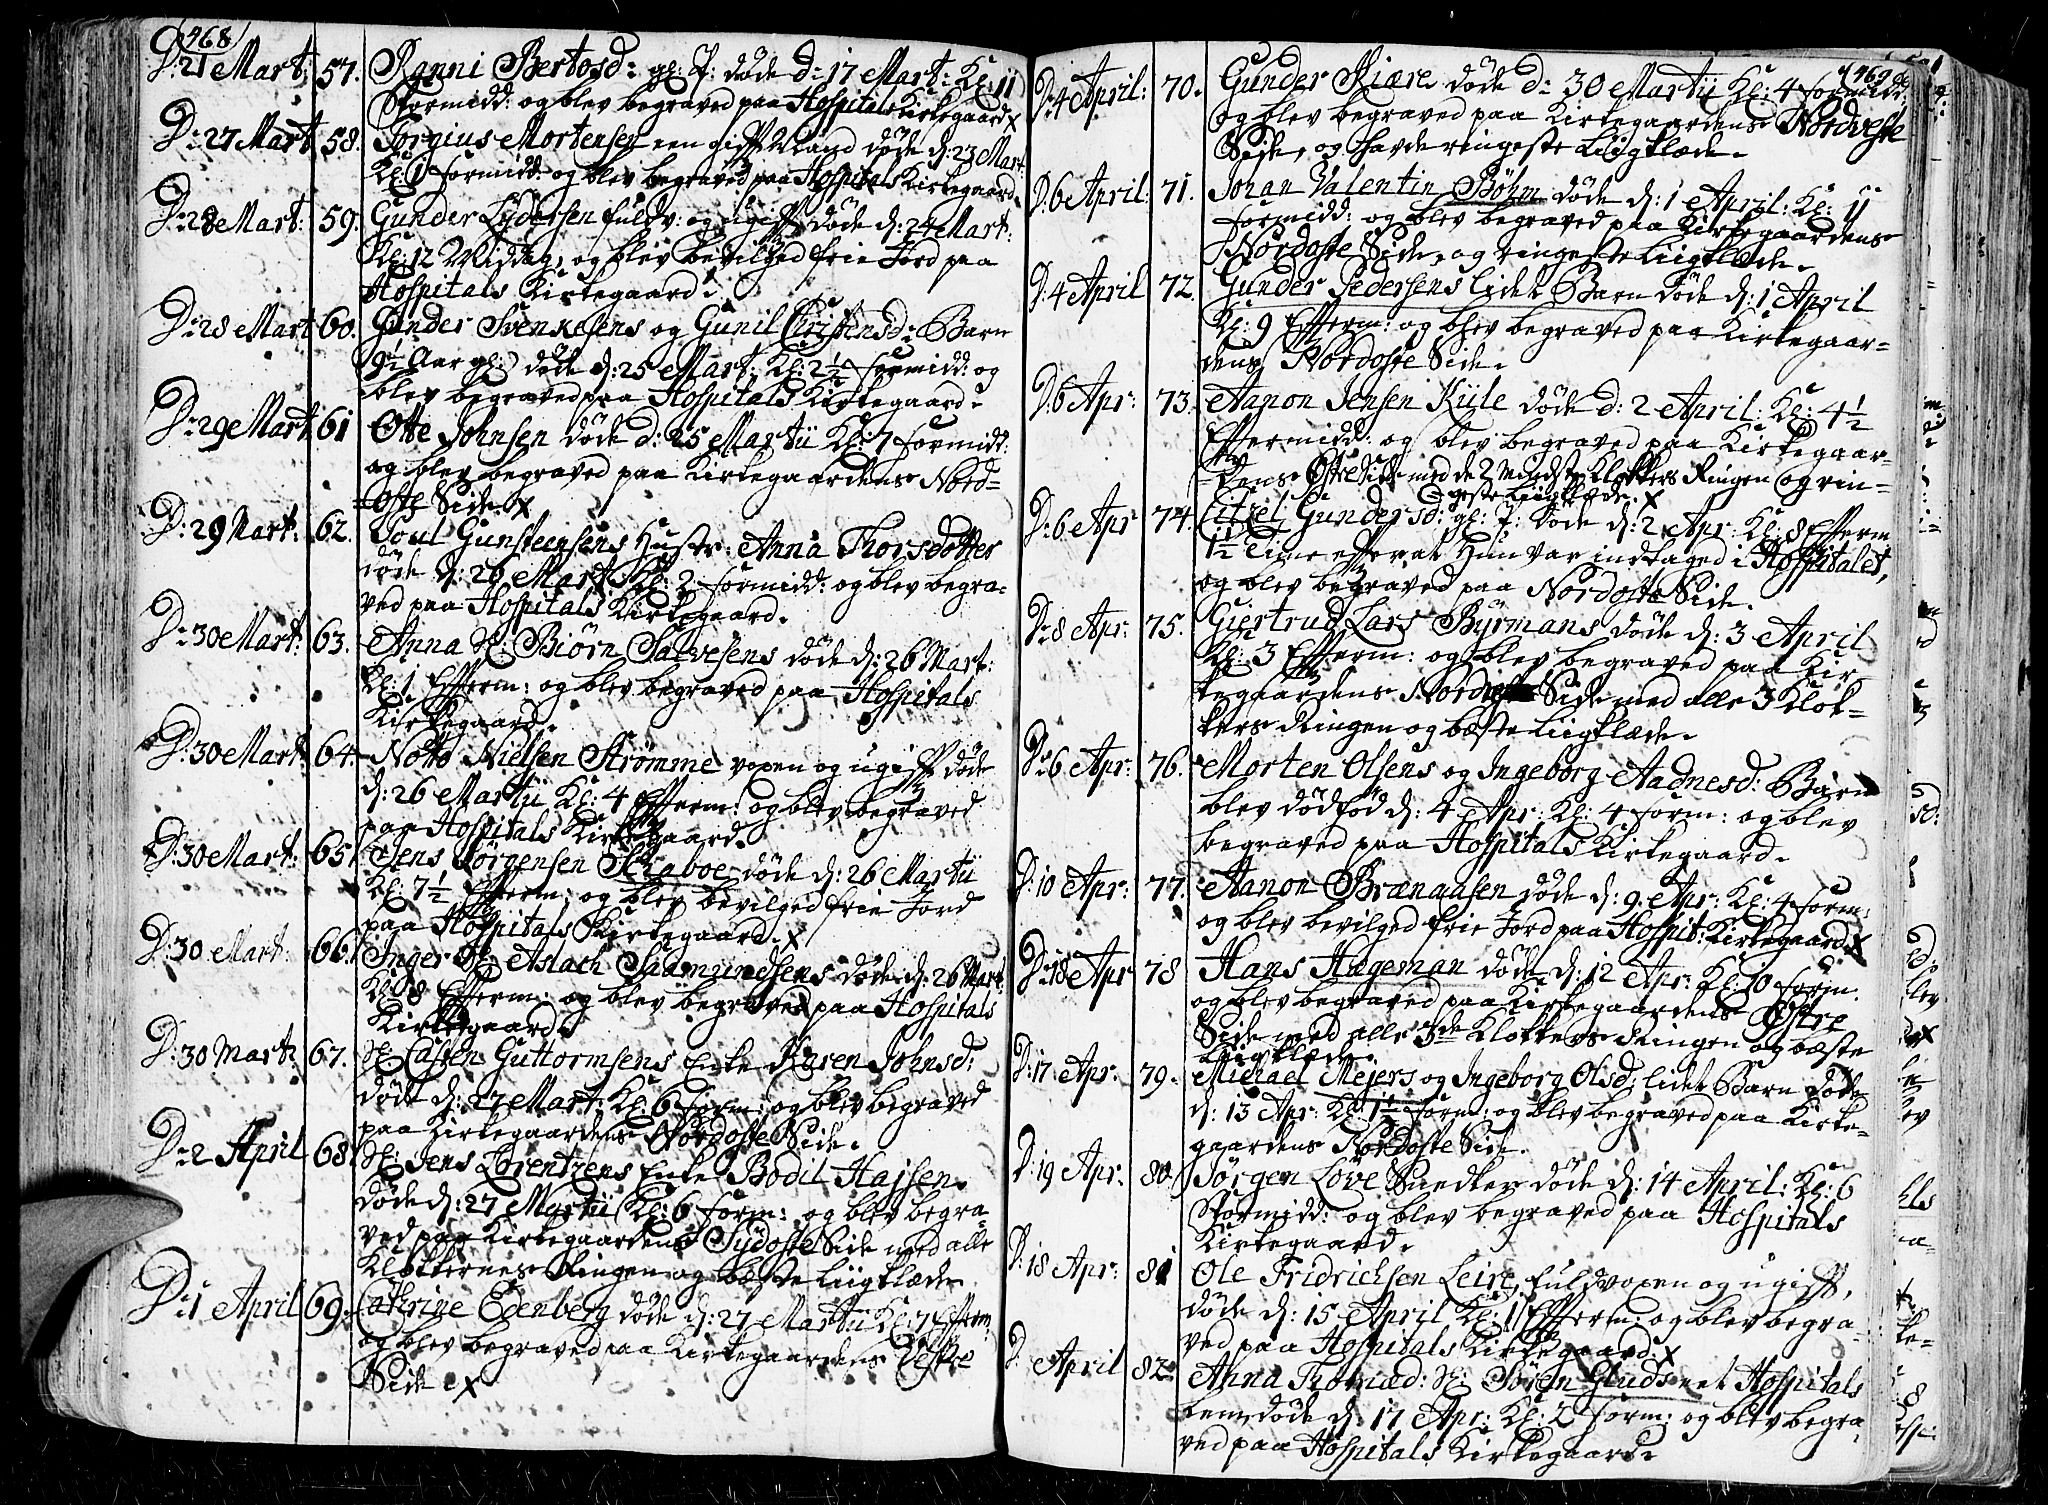 468
D: 21 Mart: 57. Ranni Bertosd: gl: P: døde d: 17 Mart: Kl: 11
Formidd: og blev begraved paa Hospitals Kirkegaard x
D: 27 Mart 58. Jorgius Mortensen een gift Mand døde d: 23 Mart:
Kl: 1 formidd: og blev begraved paa Hospitals Kirkegaard
D: 28 Mart: 59. Gunder Lydersen fuldv: og ugift døde d: 24 Mart:
Kl: 12 Middag, og blev bevilged frie Jord paa
Hospitals Kirkegaard.
D: 28 Mart 60. Gunder Svenkesens og Gunil Christensd: Barn
9½ Aar gl: døde d: 25 Mart: Kl: 2½ formidd: og
blev begraved paa Hospitals Kirkegaard.
D: 29 Mart 61 Otte Johnsen døde d: 25 Martii Kl: 7 formidd:
og blev begraved paa Kirkegaardens Nord-
oste Side. x
D: 29 Mart: 62. Poul Gunsteensens Hustr: Anna Thorsdotter
døde d: 26 Mart: Kl: 2 formidd: og blev begra-
ved paa Hospitals Kirkegaard.
D: 30 Mart: 63. Anna Sl: Biørn Salvesens døde d: 26 Mart:
Kl: 1 Efterm: og blev begraved paa Hospitals
Kirkegaard.
D: 30 Mart: 64. Notto Nielsen Strømme voxen og ugift døde
d: 26 Martii Kl: 4 Efterm: og blev begraved
paa Hospitals Kirkegaard.
D: 30 Mart: 65. Jens Jørgensen Skaboe døde d: 26 Martii
Kl: 7½ Efterm: og blev bevilged frie Jord
paa Hospitals Kirkegaard. x
D: 30 Mart: 66. Inger Sl: Aslach Saamundsens døde d: 26 Mart:
Kl: 8 Efterm: og blev begraved paa Hospitals
Kirkegaard.
D: 30 Mart: 67. Sl: Casten Guttormsens Enke Karen Johnsd:
døde d: 27 Mart: Kl: 6 form: og blev begraved
paa Kirkegaardens Nordoste Side.
D: 2 April 68. Sl: Jens Lorentzens Enke Bodil Hajsen
døde d: 27 Martii Kl: 6 form: og blev begra-
ved paa Kirkegaardens Sydoste Side med alle
Klokkernes Ringen og bæste Liigklæde
D: 1 April 69. Cathrine Edenberg døde d: 27 Martii Kl: 7 Efterm:
og blev begraved paa Kirkegaardens Vestre
Side x
469
D: 4 April: 70. Gunder Kiære døde d: 30 Martii Kl: 4 formidd:
og blev begraved paa Kirkegaardens Nordveste
Side, og havde ringeste Liigklæde.
D: 6 April: 71. Johan Valentin Böhm døde d: 1 April: Kl: 11
formidd: og blev begraved paa Kirkegaardens
Nordoste Side, og ringeste Liigklæde.
D: 4 April 72. Gunder Pedersens lidet Barn døde d: 1 April
Kl: 9 Efterm: og blev begraved paa Kirkegaar-
dens Nordoste Side.
D: 6 Apr: 73. Aanon Jensen Kiile døde d: 2 April: Kl: 4½
Eftermidd: og blev begraved paa Kirkegaar-
dens Østre Side med de 2 mindste Klokkers Ringen og rin-
geste Liigklæde. x
D: 6 Apr 74. Citzel Gundersd: gl: P: døde d: 2 Apr: Kl: 8 Efterm
1½ Time efter at Hun var indtaged i Hospitalet,
og blev begraved paa Nordoste Side.
D: 8 Apr: 75. Giertrud Lars Byrmans døde d: 3 April
Kl: 3 Efterm: og blev begraved paa Kir-
kegaardens Side med alle 3 Klok-
kers Ringen og bæste Liigklæde.
D: 6 Apr: 76. Morten Olsens og Ingeborg Aadnesd: Barn
blev dødfød d: 4 Apr: Kl: 4 form: og blev
begraved paa Hospitals Kirkegaard.
D: 10 Apr: 77. Aanon Brænaasen døde d: 9 Apr: Kl: 4 form:
og blev bevilged frie Jord paa Hospit: Kirkegaard x
D: 18 Apr 78 Hans Hageman døde d: 12 Apr: Kl: 10 form.
og blev begraved paa Kirkegaardens Østre
Side med alle 3de Klokkers Ringen og bæste
Liigklæde.
D: 17 Apr: 79. Michael Mejers og Ingeborg Olsd: lidet Barn døde
d: 13 Apr: Kl: 1½ form: og blev begraved paa Kirke-
gaardens Nordoste Side.
D: 19 Apr: 80. Jørgen Løve Snedker døde d: 14 April: Kl: 6
Formidd: og blev begraved paa Hospitals
Kirkegaard.
D: 18 Apr: 81 Ole Fridrichsen Leire, fuldvoxen og ugift,
døde d: 15 April Kl: 11 Efterm: og blev begra-
ved paa Hospitals Kirkegaard. x
D: April 82. Anna Thomæd: Sl: Søren Gluds eet Hospitals
Lem, døde d: 17 Apr: Kl: 2 form: og blev begra-
ved paa Hospitals Kirkegaard.